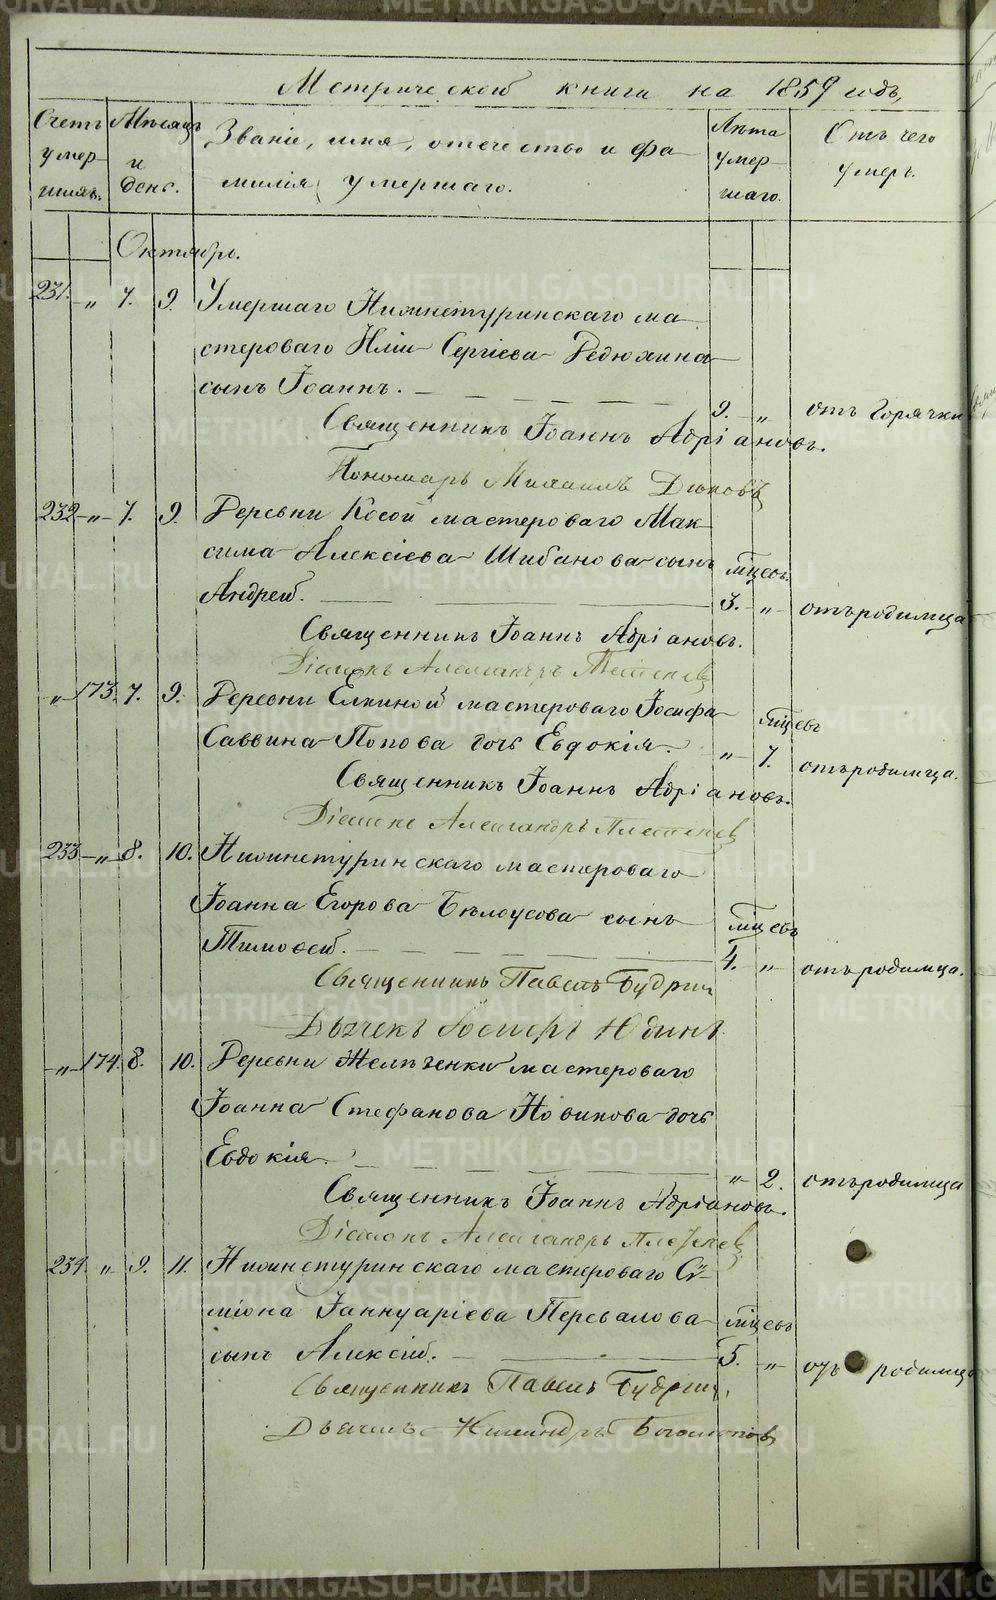 Метрической книги на 1859 годъ,
Счетъ умер- шихъ.
Мѣсяцъ и день.
Званіе, имя, отечество и фа-
милія умершаго.
Лѣта умер- шаго.
Отъ чего умеръ.
Октябрь.
231. „ 7. 9. Умершаго Нижнетуринскаго ма-
стероваго Иліи Сергіева Редюхина
сынъ Іоаннъ. 9. „ отъ горячки
Священникъ Іоаннъ Адріановъ.
Пономарь Михаилъ
232 „ 7. 9. Деревни Косой мастероваго Мак-
сима Алексіева Шибанова сынъ мѣсцевъ.
Андрей. 3. „ отъ родимца
Священникъ Іоаннъ Адріановъ.
Діаконъ Александръ
„ 173. 7. 9. Деревни Елкиной мастероваго Іосифа мѣсцевъ
Саввина Попова дочь Евдокія. „ 7. отъ родимца.
Священникъ Іоаннъ Адріановъ.
Діаконъ Александръ
233 „ 8. 10. Нижнетуринскаго мастероваго
Іоанна Егорова Бѣлоусова сынъ мѣсцевъ
Тимоѳей. 4. „ отъ родимца.
Священникъ Павелъ Будрин
Дьячекъ Юдинъ
„ 174. 8. 10. Деревни Желѣзенки мастероваго
Іоанна Стефанова Новикова дочь
Евдокія. „ 2. отъ родимца
Священникъ Іоаннъ Адріановъ.
Діаконъ Александръ
234. „ 9. 11. Нижнетуринскаго мастероваго Сѵ-
міона Іаннуаріева Перевалова мѣсцевъ
сынъ Алексій. 5. „ отъ родимца
Священникъ Павелъ Будрин,
Дьячекъ Никандръ